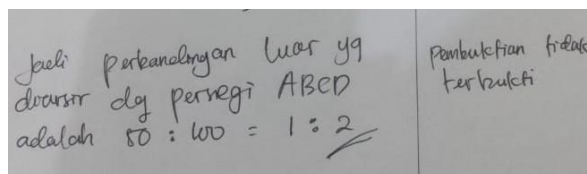 Jadi perbandingan luar yg
diarsir dg persegi ABCD
adalah 50 : 100 = 1 : 2
pembuktian tidak
terbukti